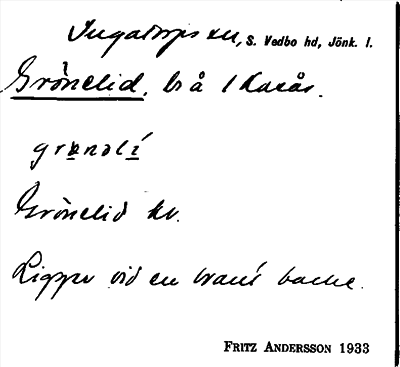 Ingatorps sn, S. Vedbo hd, Jönk. l.
Grönelid, å 1
grɵnəlí
Grönelid kv.
Ligger vid en brant backe.
FRITZ ANDERSSON 1933